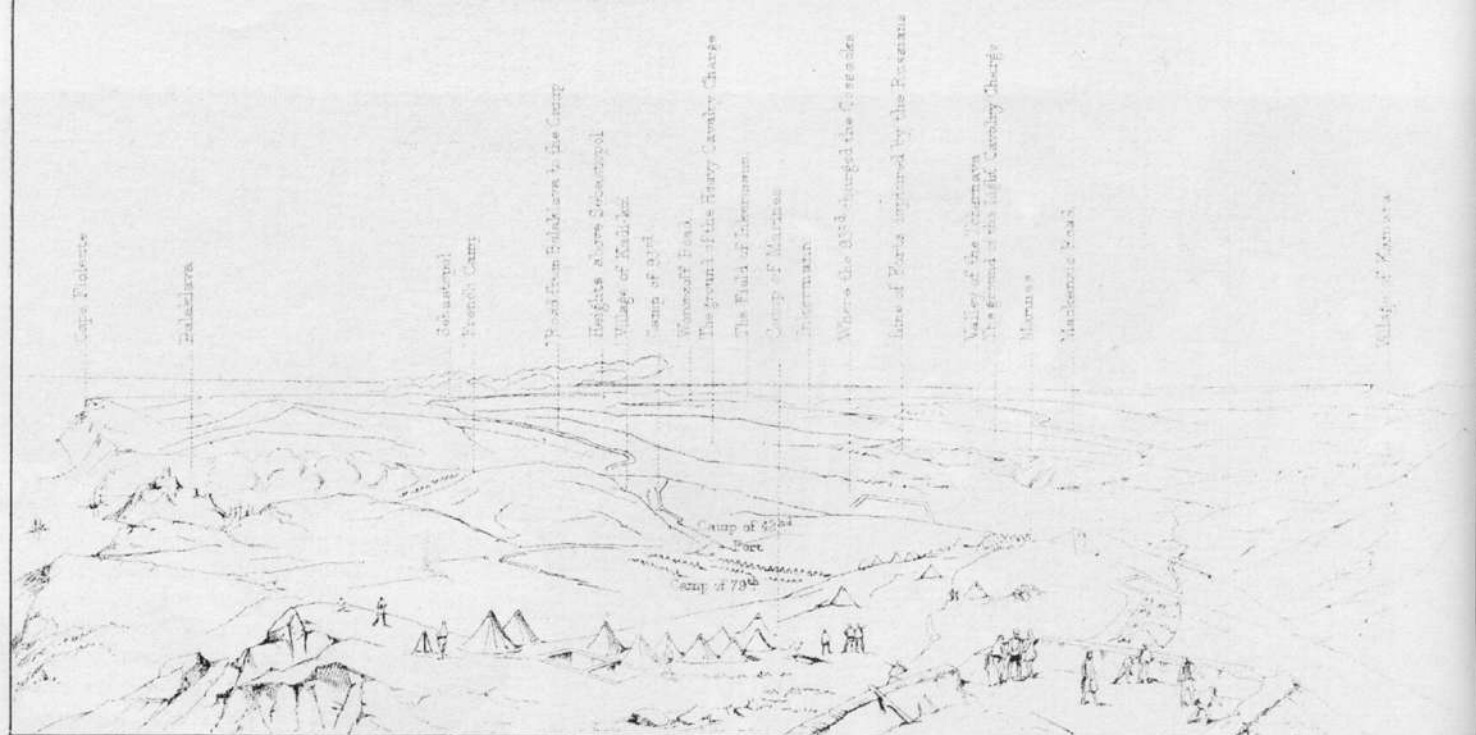 Cape Fiolente
Balaklava
Sebastopol
French Camp
Road from Balaklava to the Camp
Heights above Sebastopol
Village of
Camp of 93rd
Woronzoff Road
The ground of the Heavy Cavalry Charge
The Field of Inkermann
Camp of Marines
Inkermann
Where the 93rd charged the Cossacks
Line of Forts captured by the Russians
Valley of the Tchernaya
The ground of the Light Cavalry Charge
Marines
Mackenzie Road
Village of Kamara
Camp of 42nd
Fort
Camp of 79th